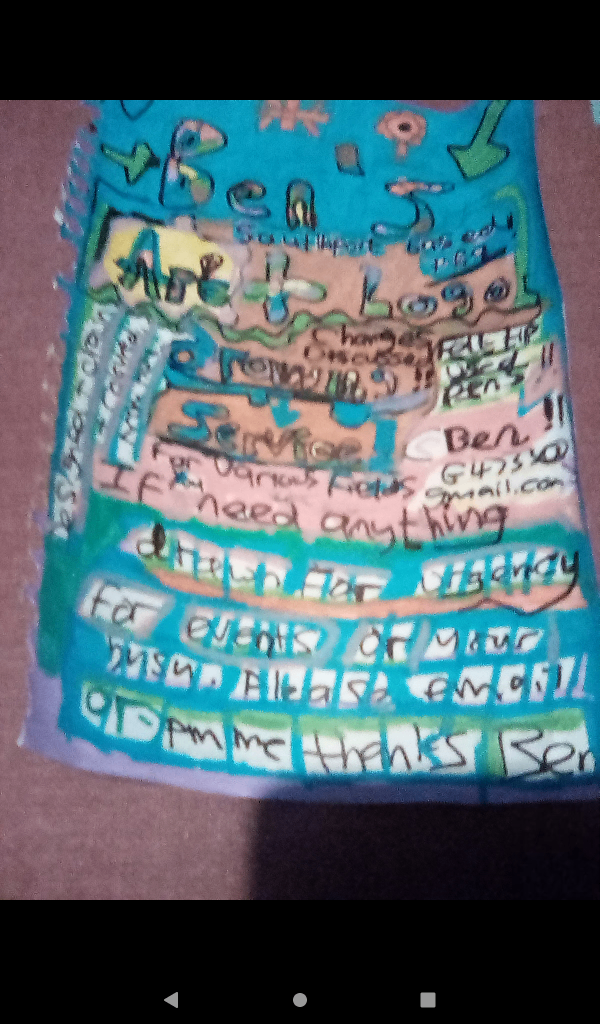 Ben S
Southport based!
Art + Logo
Charges
Discussed
Drawing!!
Felt tip
used
pens !!
Service!
Ben !!
For various fields
G4733@
gmail.com
If need anything
drawn for urgency
For events or your
busy. Please email
or pm me thanks Ben